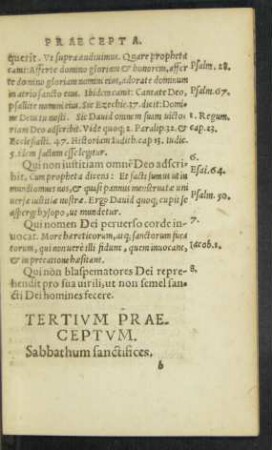 PRAECEPTA.
querit. Vt supra audiuimus. Quare propheta
canit: Afferte domino gloriam & honorem, affer
te domino gloriam nomini eius, adorate dominum
in atrio sancto eius. Ibidem canit: Cantate Deo,
psallite nomini eius. Sic Ezechie. 27. dicit: Domi
ne Deus tu nosti. Sic Dauid omnem suam uicto
riam Deo adscribit. Vide quoq. 1. Paralip. 32. &
Ecclesiasti. 47. Historiam Iudith cap 15. Iudic.
5. idem factum esse legitur.
Qui non iustitiam omnē Deo adscri
bit. Cum propheta dicens: Et facti sumus ut im
mundi omnes nos, & quasi pannus menstruatæ uni
uersæ iustitiæ nostræ. Ergo Dauid quoq, cupit se
aspergi hysopo, ut mundetur.
Qui nomen Dei peruerso corde in
uocat. More hereticorum, atq, sanctorum sua
torum, qui non uerè illi fidunt, quem inuocant,
& in precatione hæsitant.
Qui non blasphematores Dei repre
hendit pro sua uirili, ut non semel san
cti Dei homines fecere.
TERTIVM PRAE-
CEPTVM.
Sabbathum sanctifices.
b
Psalm. 28.
Psalm. 67.
1. Regum.
cap. 13.
6.
Esai. 64.
Psalm. 50.
7.
Iacob. 1.
8.